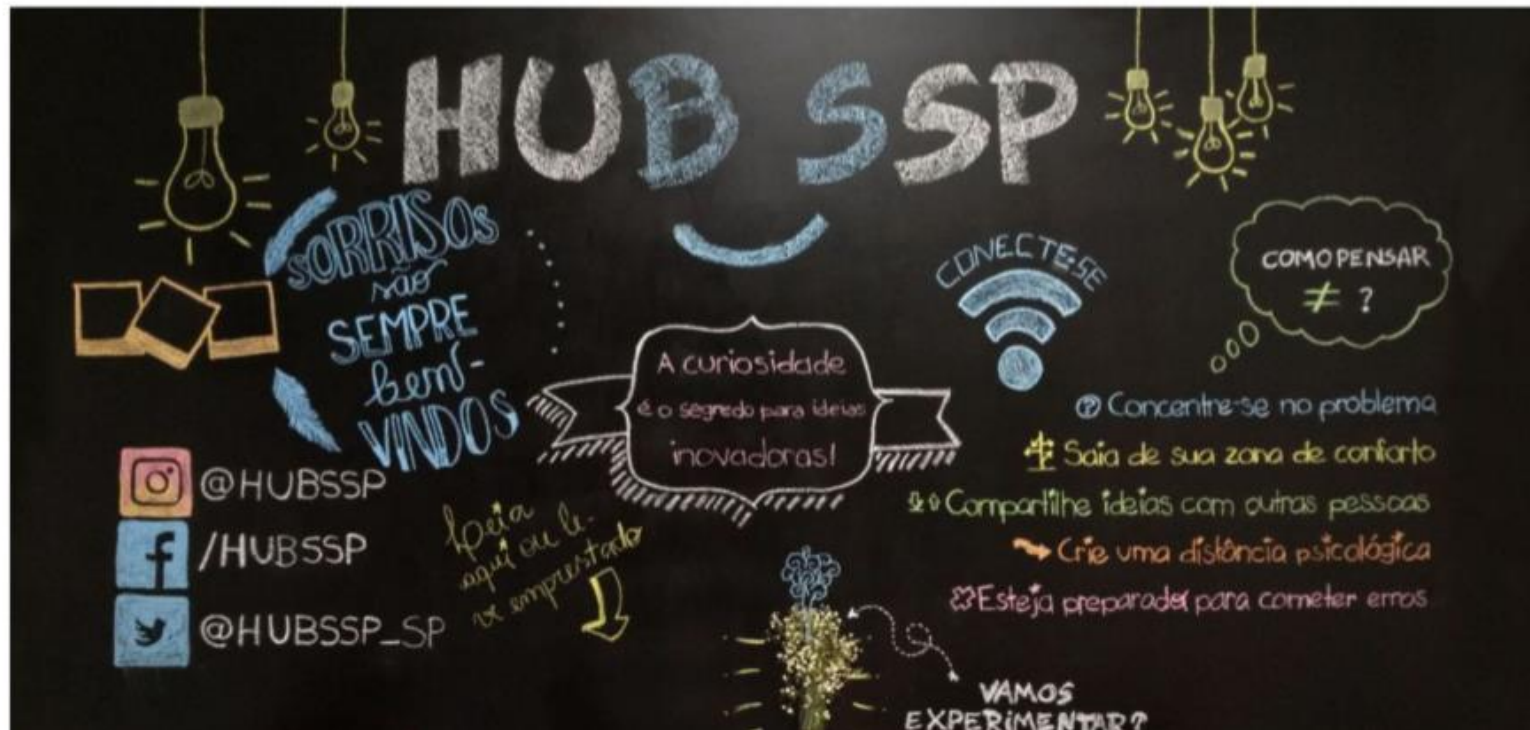 HUB SSP
SORRISOS
são
SEMPRE
bem-
VINDOS
CONECTE-SE
COMO PENSAR
≠ ?
A curiosidade
é o segredo para ideias
inovadoras!
Concentre-se no problema
Saia de sua zona de conforto
Compartilhe ideias com outras pessoas
Crie uma distância psicológica
Esteja preparado para cometer erros
@HUBSSP
/HUBSSP
@HUBSSP_SP
Leia
aqui ou le-
ve emprestado
VAMOS
EXPERIMENTAR?